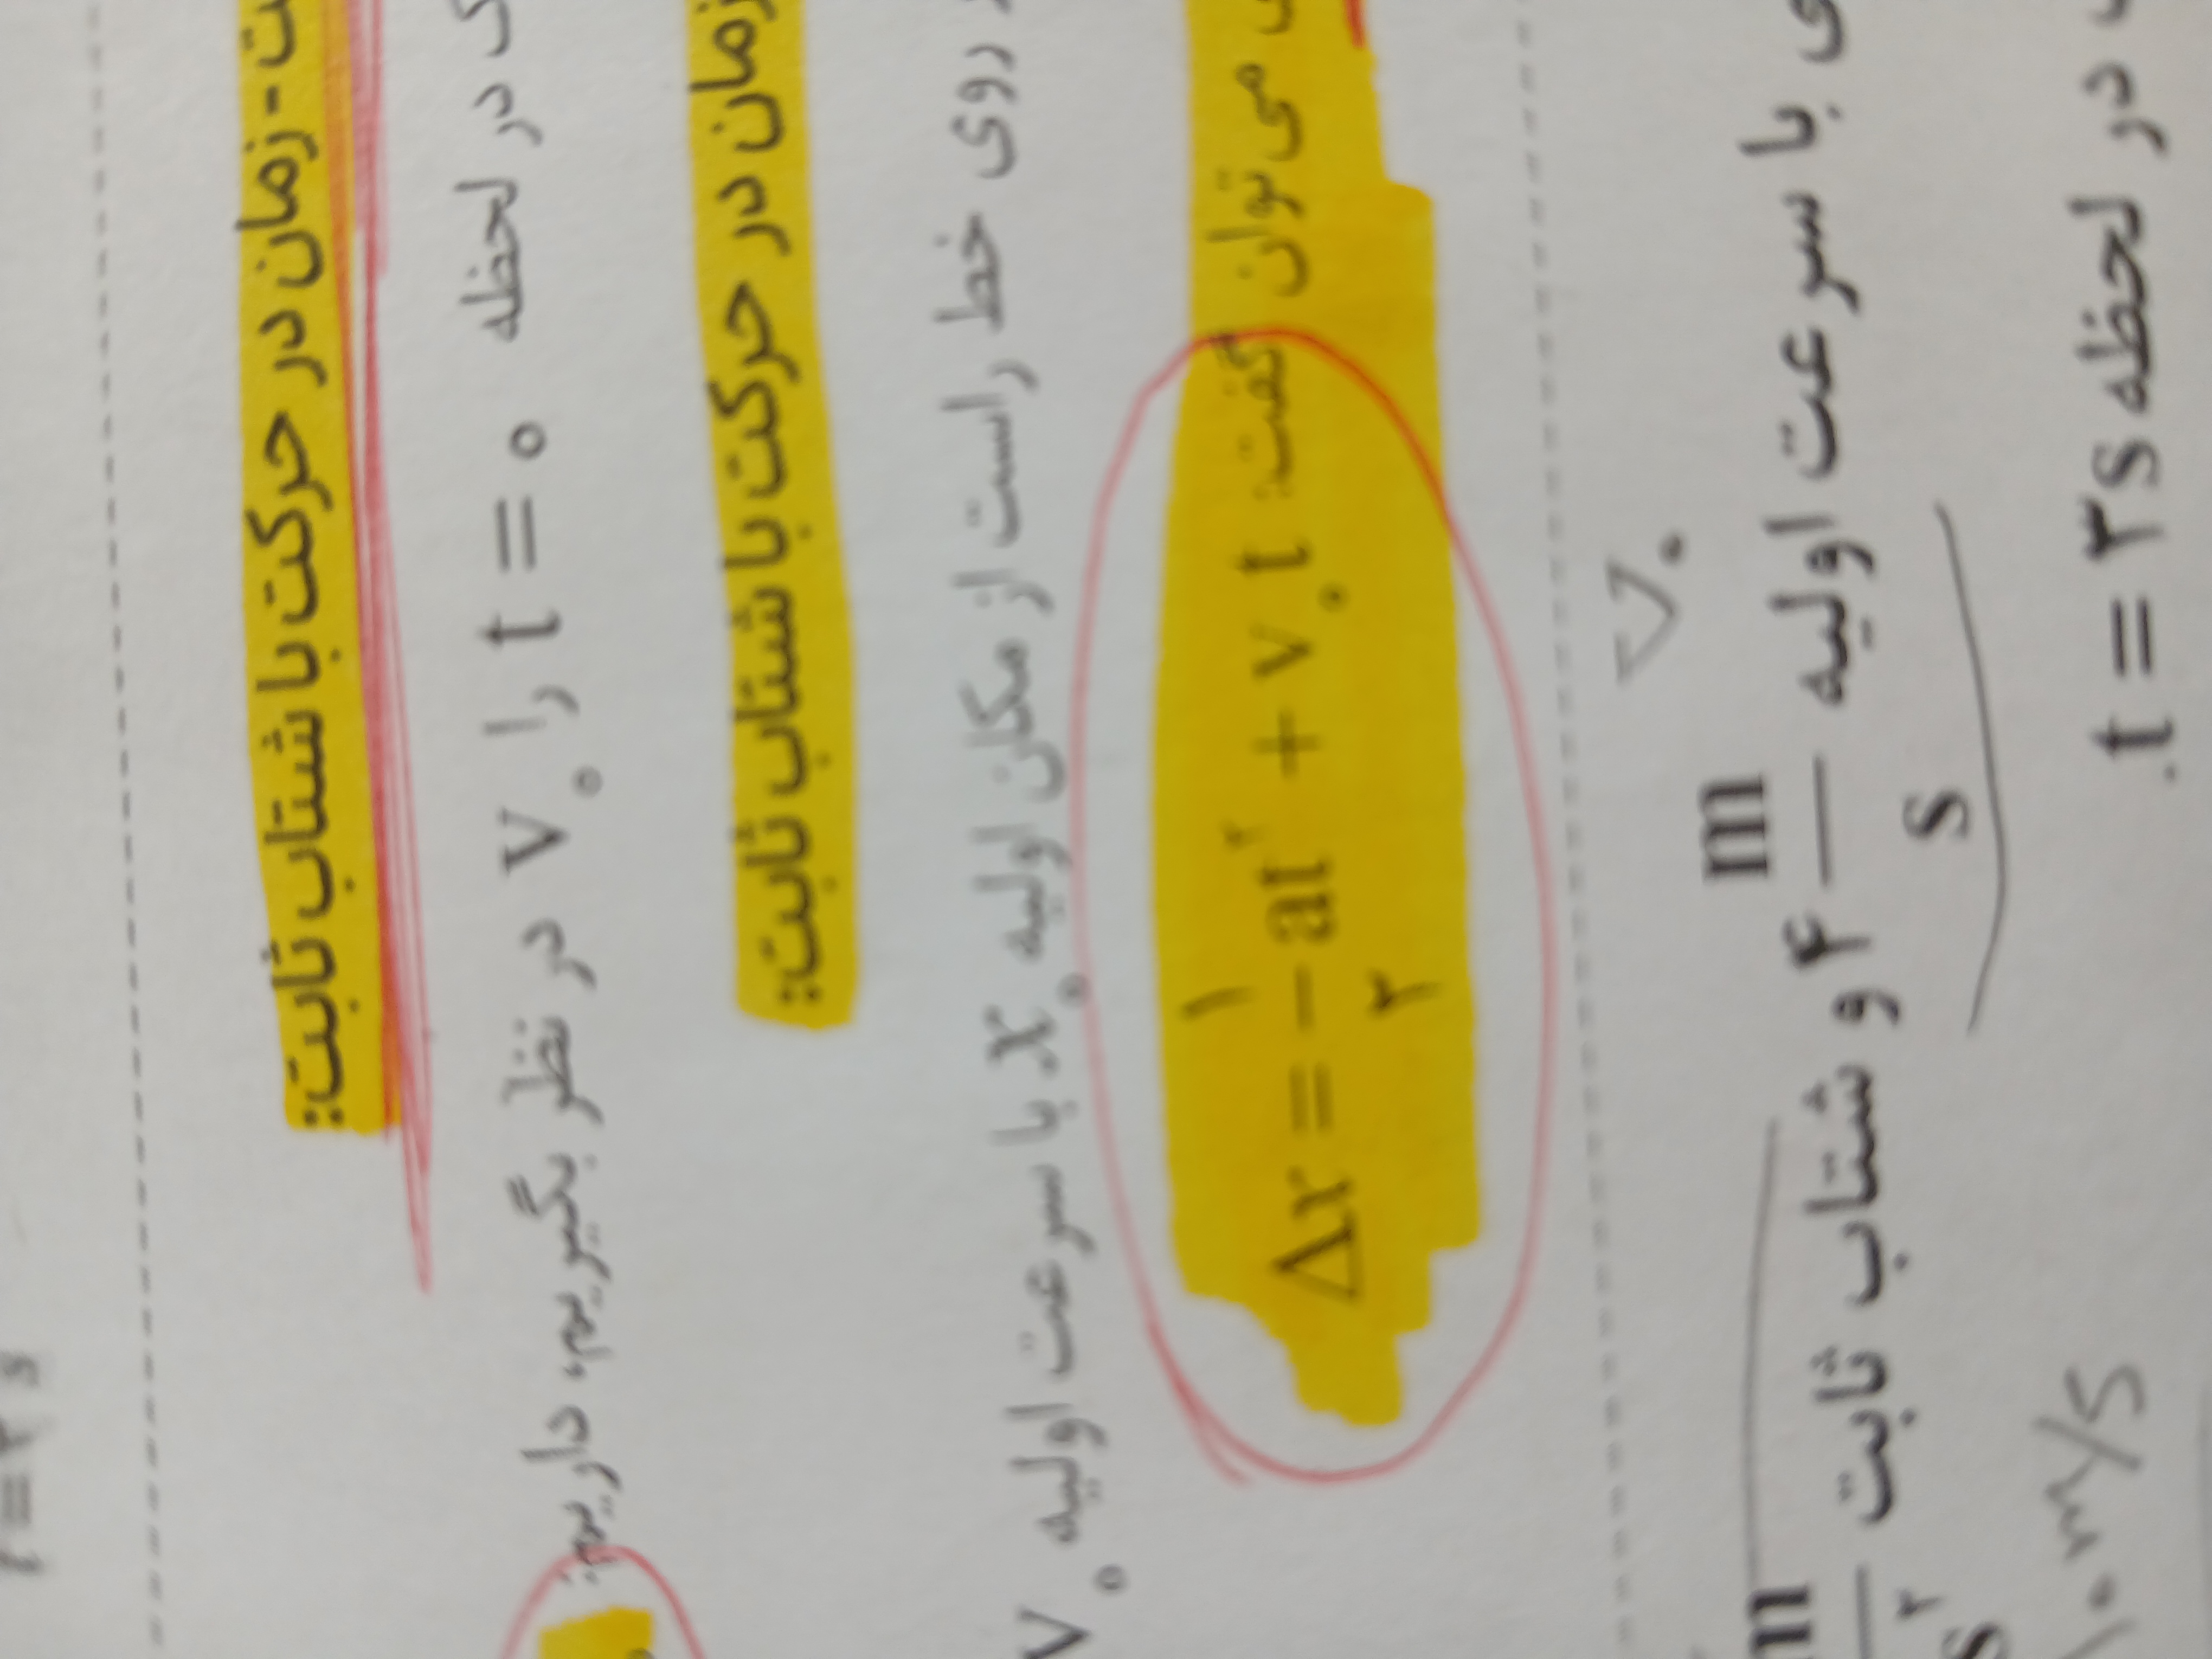 t = ۲ s
ت - زمان در حرکت با شتاب ثابت:
در لحظه t = ۰ را v₀ در نظر بگیریم، داریم:
زمان در حرکت با شتاب ثابت:
روی خط راست از مکان اولیه x₀ با سرعت اولیه v₀
می‌توان گفت: Δx = ۱/۲ at² + v₀t
v₀
ی با سرعت اولیه ۴ m/s و شتاب ثابت m/s²
در لحظه t = ۳s
۱۰ m/s